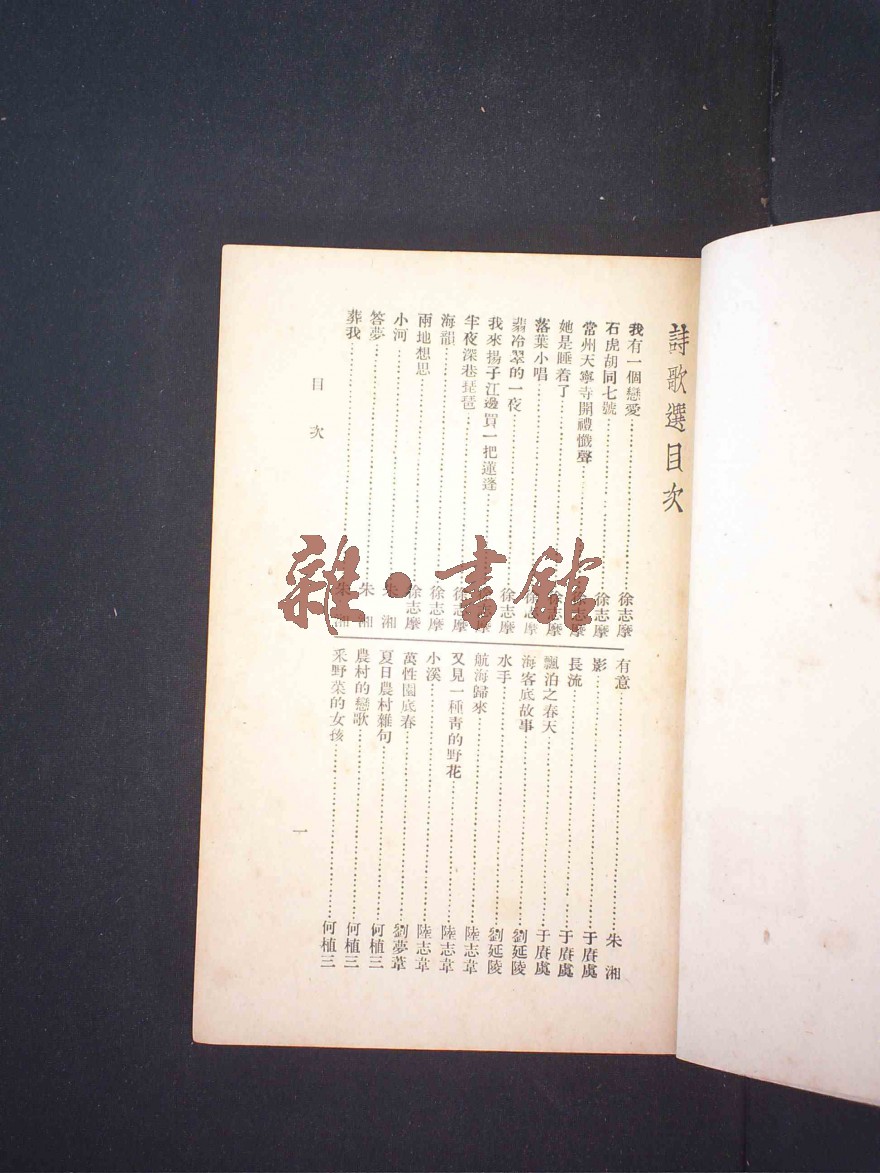 詩歌選目次
我有一個戀愛……徐志摩
石虎胡同七號……徐志摩
常州天寧寺開禮懺聲……徐志摩
她是睡着了……徐志摩
落葉小唱……徐志摩
翡冷翠的一夜……徐志摩
我來揚子江邊買一把蓮蓬……徐志摩
半夜深巷琵琶……徐志摩
海韻……徐志摩
兩地想思……徐志摩
小河……朱湘
答夢……朱湘
葬我……朱湘
有意……朱湘
影……于賡虞
長流……于賡虞
飄泊之春天……于賡虞
海客底故事……劉延陵
水手……劉延陵
航海歸來……陸志韋
又見一種青的野花……陸志韋
小溪……陸志韋
萬性園底春……劉夢葦
夏日農村雜句……何植三
農村的戀歌……何植三
采野菜的女孩……何植三
目次
一
雜·書館